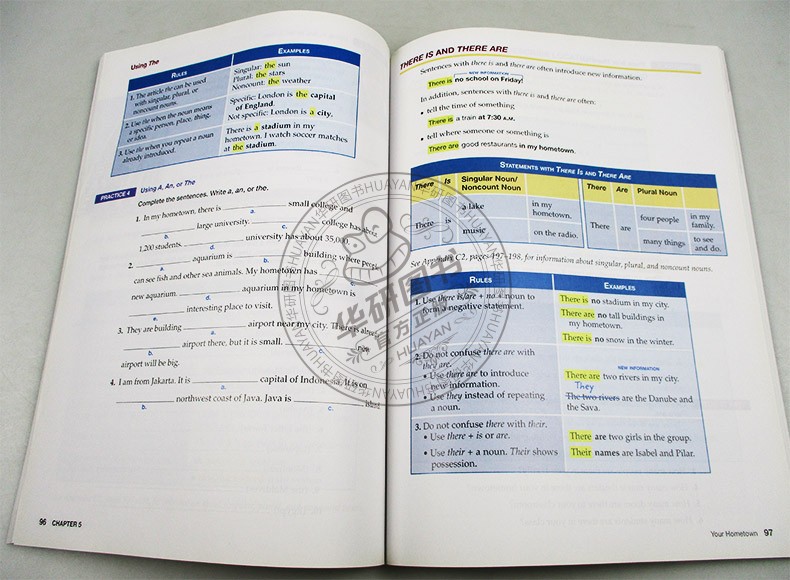 Using The
RULES
EXAMPLES
1. The article the can be used
with singular, plural, or
noncount nouns.
Singular: the sun
Plural: the stars
Noncount: the weather
2. Use the when the noun means
a specific person, place, thing,
or idea.
Specific: London is the capital
of England.
Not specific: London is a city.
3. Use the when you repeat a noun
already introduced.
There is a stadium in my
hometown. I watch soccer matches
at the stadium.
PRACTICE 4 Using A, An, or The
Complete the sentences. Write a, an, or the.
1. In my hometown, there is ____ small college and
a.
____ large university. ____ college has about
b. c.
1,200 students. ____ university has about 35,000.
d.
2. ____ aquarium is ____ building where people
a. b.
can see fish and other sea animals. My hometown has ____
new aquarium. ____ aquarium in my hometown is
d.
____ interesting place to visit.
e.
3. They are building ____ airport near my city. There is already
a.
____ airport there, but it is small. ____ new
b. c.
airport will be big.
4. I am from Jakarta. It is ____ capital of Indonesia. It is on
a.
____ northwest coast of Java. Java is ____ island.
b. c.
96 CHAPTER 5
THERE IS AND THERE ARE
Sentences with there is and there are often introduce new information.
NEW INFORMATION
There is no school on Friday!
In addition, sentences with there is and there are often:
• tell the time of something
There is a train at 7:30 A.M.
• tell where someone or something is
There are good restaurants in my hometown.
STATEMENTS WITH THERE IS AND THERE ARE
There Is Singular Noun/
Noncount Noun
There Are Plural Noun
There is
a lake in my
hometown.
music on the radio.
There are
four people in my
family.
many things to see
and do.
See Appendix C2, pages 197–198, for information about singular, plural, and noncount nouns.
RULES
EXAMPLES
1. Use there is/are + no + a noun to
form a negative statement.
There is no stadium in my city.
There are no tall buildings in
my hometown.
There is no snow in the winter.
2. Do not confuse there are with
they are.
• Use there are to introduce
new information.
• Use they instead of repeating
a noun.
NEW INFORMATION
There are two rivers in my city.
They
The two rivers are the Danube and
the Sava.
3. Do not confuse there with their.
• Use there + is or are.
• Use their + a noun. Their shows
possession.
There are two girls in the group.
Their names are Isabel and Pilar.
Your Hometown 97
华研图书
官方正版
HUAYAN